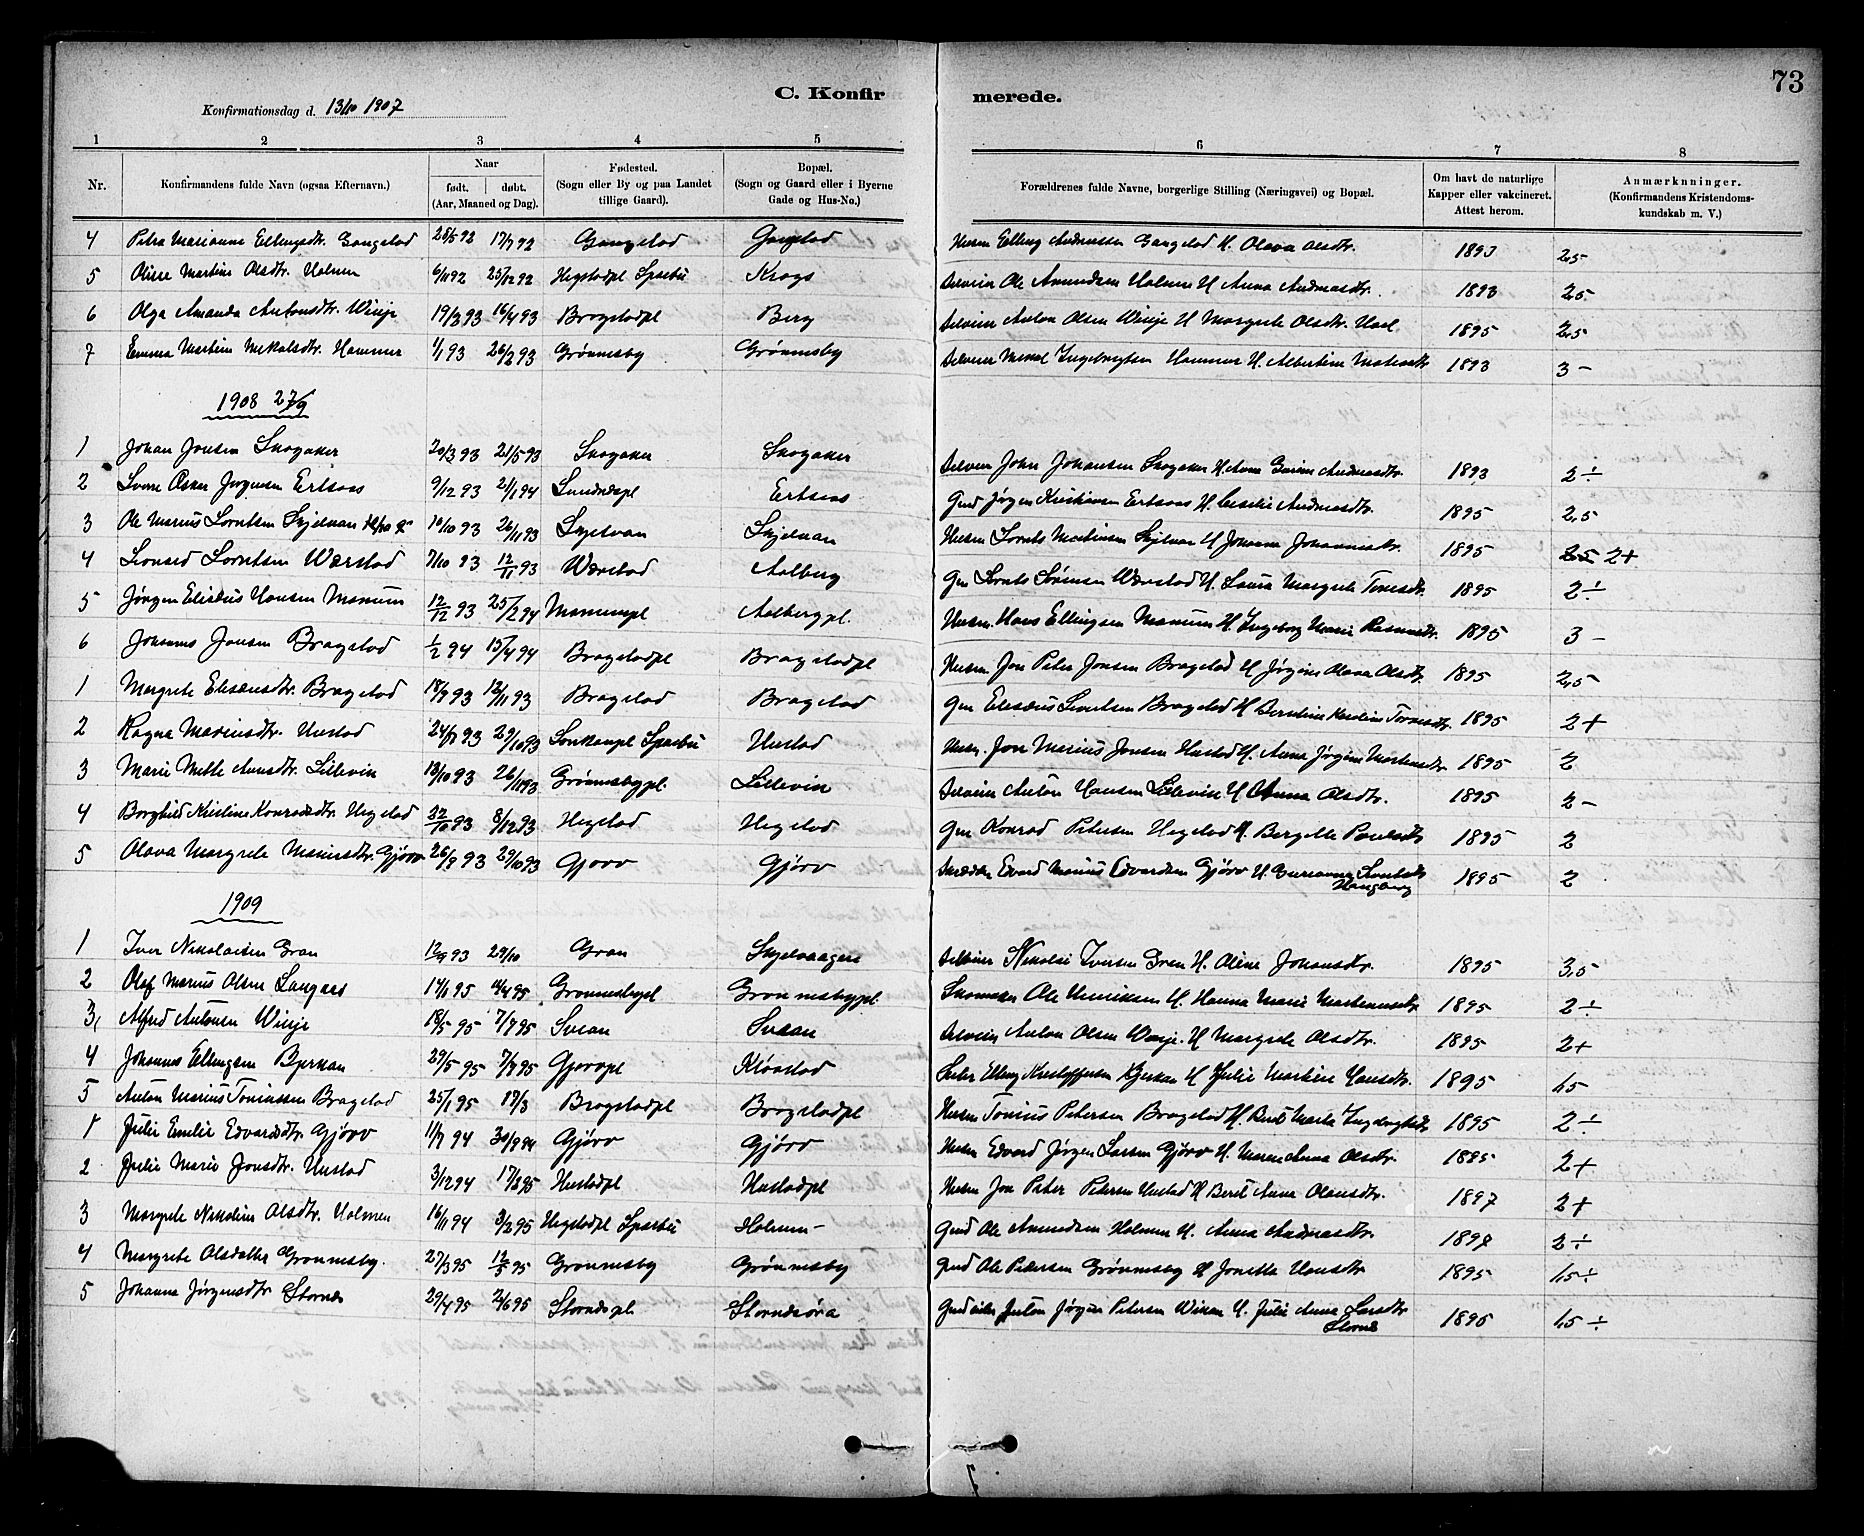 73
C. Konfirmerede.
Konfirmationsdag d. 13/10 1907
1 2 3 4 5 6 7 8
Nr. Konfirmandens fulde Navn (ogsaa Efternavn.) Naar født. døbt. (Aar, Maaned og Dag). Fødested. (Sogn eller By og paa Landet tillige Gaard). Bopæl. (Sogn og Gaard eller i Byerne Gade og Hus-No.) Forældrenes fulde Navne, borgerlige Stilling (Næringsvei) og Bopæl. Om havt de naturlige Kapper eller vakcineret. Attest herom. Anmærkninger. (Konfirmandens Kristendomskundskab m. V.)
4 Petra Marianne Ellingsdtr. Gangstad 28/5 92 17/7 92 Gangstad Gangstad Elling Andreassen Gangstad H. Olava Olsdtr. 1893 2,5
5 Martine Olsdtr. Holmen 6/11 92 25/12 92 Hegstadpl Sparbu Krogs Ole Amundsen Holmen H Anna Andreasdtr. 1893 2,5
6 Olga Amanda Antonsdtr. Winje 19/3 93 16/4 93 Bragstadpl Berg Anton Olsen Winje H Margrete Olsdtr. 1895 2,5
7 Emma Martine Mikalsdtr. Hammer 1/1 93 26/2 93 Grönnesby Grönnesby Ingebrigtsen Hammer H. Albertine 1893 3 -
1908 27/9
1 Johan Jonsen Skogaker 20/3 93 21/5 93 Skogaker Skogaker John Johansen Skogaker H Andreasdtr. 1893 2 ÷
2 Sverre Oskar Jørgensen Ertsaas 9/12 93 21/1 94 Sundnespl Ertsaas Gmd Jørgen Kristiansen Ertsaas H. Cecilie Andreasdtr. 1895 2,5
3 Ole Marius Lorntsen Skjelvan 10/10 93 26/11 93 Skjelvan Skjelvan Lornts Martinsen Skjelvan H Johanna Johannesdtr. 1895 2,5
4 Leonard Lorntsen Wærstad 7/10 93 12/11 93 Wærstad Aalberg Gm Lornts Sörensen Wærstad H. Laura Margrete 1895 2 ÷
5 Jørgen Eliseus Hansen Manum 12/12 93 25/2 94 Manumpl Aalbergpl. Hans Ellingsen Manum H. Ingeborg Marie Rasmusdtr. 1895 3 -
6 Johannes Jonsen Bragstad 1/2 94 15/4 94 Bragstadpl Bragstadpl Jon Peter Jonsen Bragstad H Jørgine Olava Olsdtr. 1895 2,5
1 Margrete Eliseusdtr. Bragstad 18/9 93 12/11 93 Bragstad Bragstad Gm Eliseus Lorntsen Bragstad H Karoline 1895 2+
2 Ragna Mariusdtr. Hustad 24/8 93 29/10 93 Sparbu Hustad Jon Marius Jonsen Hustad H. Anna Jørgine 1895 2
3 Marie Mette Lillevin 13/10 93 26/11 93 Grönnesbypl. Lillevin Anton Hansen Lillevik H Anna Olsdtr. 1895 2 -
4 Borghild Kristine Konradsdtr. Hegstad 22/10 93 8/12 93 Hegstad Hegstad Gm Konrad Petersen Hegstad H. Bergitte Paulsdtr 1895 2
5 Olava Margrete Mariusdtr. Gjörv 26/9 93 29/10 93 Gjørv Gjörv Edvard Marius Edvardsen Gjörv H. Gurianna Lorntsdtr Haugberg 1895 2
1909
1 Iver Nikolaisen Gran 12/9 93 29/10 Gran Skjelvaagere Nikolai Iversen Gran H. Oline Johansdtr. 1895 3,5
2 Olaf Marius Olsen Langaas 14/1 95 95 Grönnesbypl Grönnesbypl. Skomaker Ole Henriksen H. Hanna Marie 1895 2 ÷
3 Alfred Antonsen Winje 18/5 95 7/7 95 Svean Svean Anton Olsen Winje H Margrete Olsdtr. 1895 2+
4 Johannes Ellingsen Bjerkan 29/5 95 7/7 95 Gjørvpl Klövstad Elling Kristoffersen Bjerkan H Julie Martine Hansdtr. 1895 1,5
5 Anton Marius Toniussen Bragstad 25/1 95 17/3 Bragstadpl Bragstadpl Tonius Petersen Bragstad H. Berit Marta Ingebrigtsdtr 1895 2 ÷
1 Julie Emilie Edvardsdtr. Gjörv 11/7 94 30/9 94 Gjörv Gjörv Edvard Jørgen Larsen Gjörv H. Maren Anna Olsdtr. 1895 2+
2 Julie Marie Jonsdtr. Hustad 3/12 94 17/3 95 Hustadpl Hustadpl Jon Peter Petersen Hustad H Berit Anna Olausdtr. 1897 2+
3 Margrete Nikoline Olsdtr. Holmen 16/11 94 3/2 95 Hegstadpl Sparbu Holmen - Gmd Ole Amundsen Holmen H. Anna Andreasdtr. 1897 2 ÷
4 Margrete Olsdatter Grönnesby. 27/3 95 12/5 95 Grönnesby Grönnesby Gmd Ole Pedersen Grönnesby H Jonetta Hansdtr 1895 1,5 ÷
5 Johanna Jørgensdtr Stornes 29/4 95 2/6 95 Stornespl. Stornesöra Jørgen Petersen Wikan H. Julie Anna Larsdtr Stornes 1895 1,5 ÷